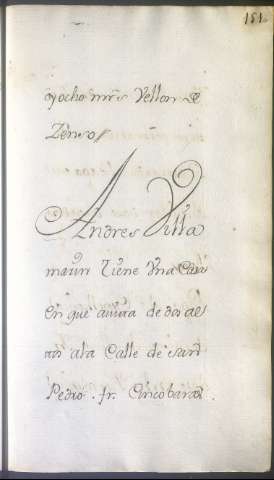 151
oy ocho mrs Vellon de
Zenso //
Andres Villa
mauri tiene Vna Casa
en que auita de dos al
tos ala Calle de san
Pedro. fr. Cinco baras.